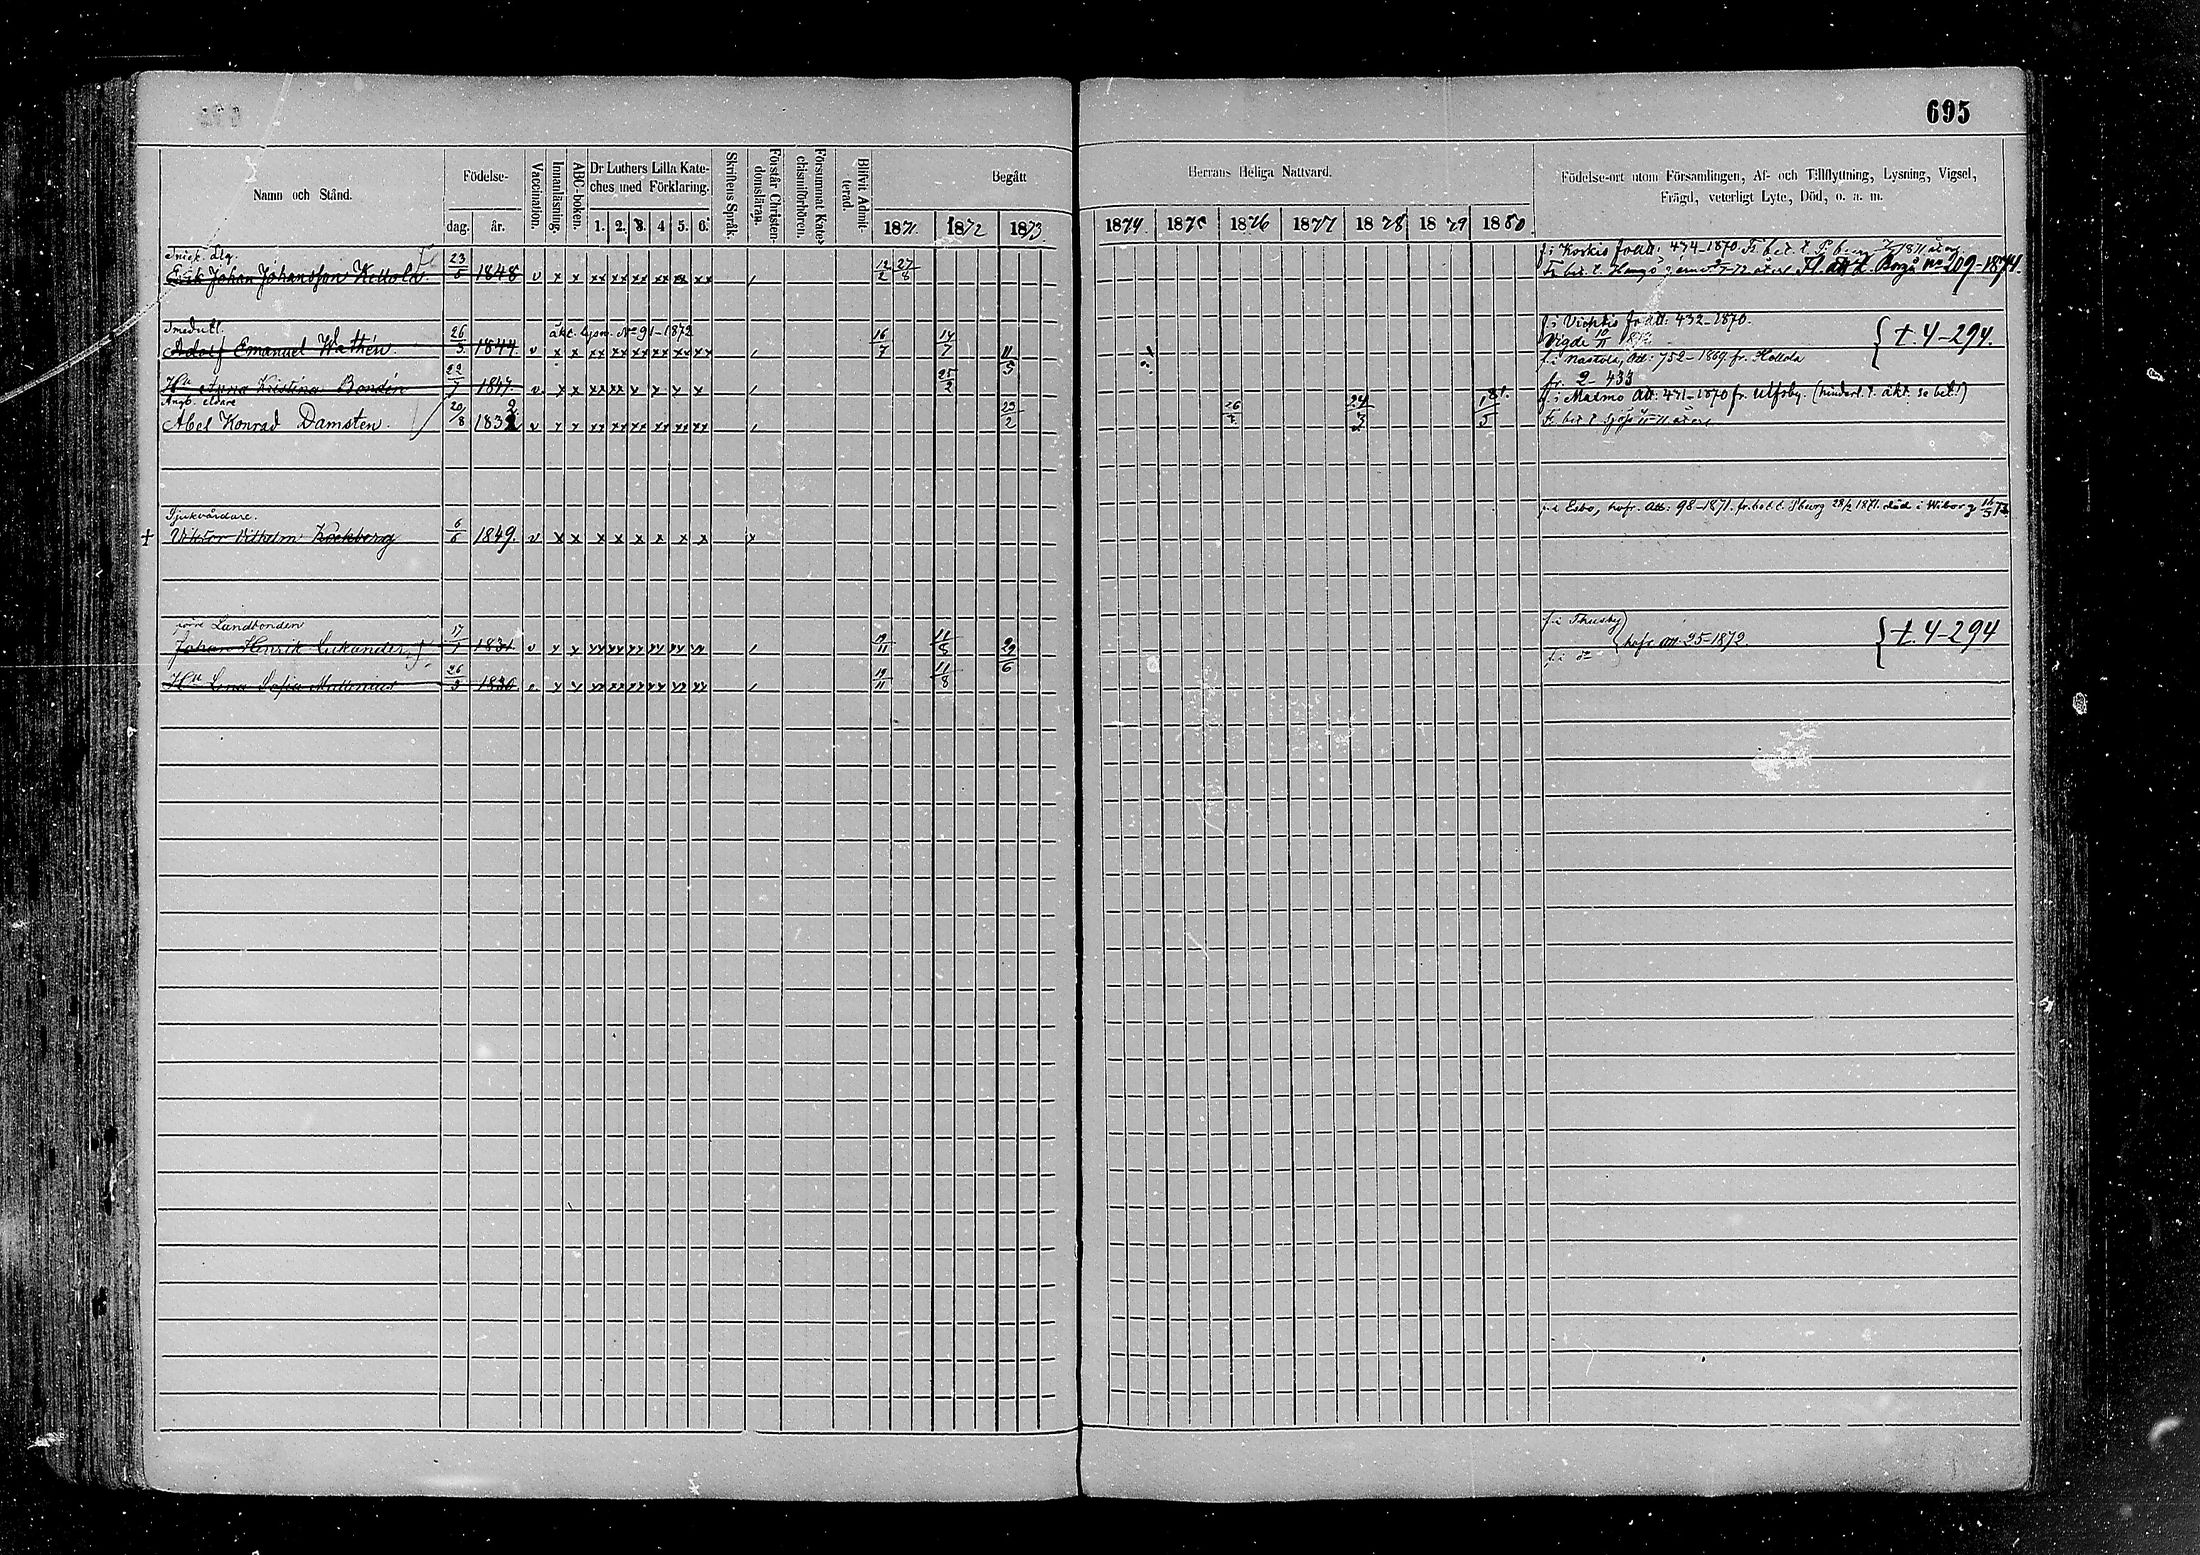 695
Namn och Stånd.
Födelse-
dag. år.
Vaccination.
Innanläsning.
ABC-boken.
Dr Luthers Lilla Kate-
ches med Förklaring.
1. 2. 3. 4 5. 6.
Skriftens Språk.
Förstår Christen-
domsläran.
Försummat Kate-
chismiförhören.
Blifvit Admit-
terad.
Begått
1871. 1872 1873.
Herrans Heliga Nattvard.
1874 1875 1876 1877 1878 1879 1880
Födelse-ort utom Församlingen, Af- och Tillflyttning, Lysning, Vigsel,
Frägd, veterligt Lyte, Död, o. a. m.
f. i Koskis fr. att: 474-1870.
Erik Johan Johansson 23/6 1848 v x x xx xx xx xx xx xx 12/2 27/8 Fl. att t. Borgå no 209-1874.
Smedutl. äkt. lysn. No 91-1872 432-1870.
Adolf Emanuel Wathén. 26/3 1844. v x x xx xx xx xx xx xx 16/7 14/7 11/5 Vigde 10/11
f. i Nastola, Att: 752-1869. fr. Hollola
{t. 4-294.
Hu Anna Kristina Bondén 1847. v x x xx xx x x x x 25/2 fr. 2-433
Abel Konrad Damsten. 20/8 1832 v x x xx xx xx xx xx xx 23/2 26/7 24/3 f. i Malmö Att: 471-1870 fr. Ulfsby. (hinderl. t. äkt. se bet!)
Sjukvårdare. f. i Esbo, hofr. Att: 98-1871. död i Wiborg
+ Viktor Vilhelm 6/6 1849. v x x x x x x x x x
förre Landbonden f. i Thusby
Johan Henrik 17/1 1831 v x x xx xx xx xx xx xx 19/11 11/8 29/6 hofr. att 25-1872. {t. 4-294
f. i do
Hu Lena Sofia 26/3 1830 v x x xx xx xx xx xx xx 19/11 11/8